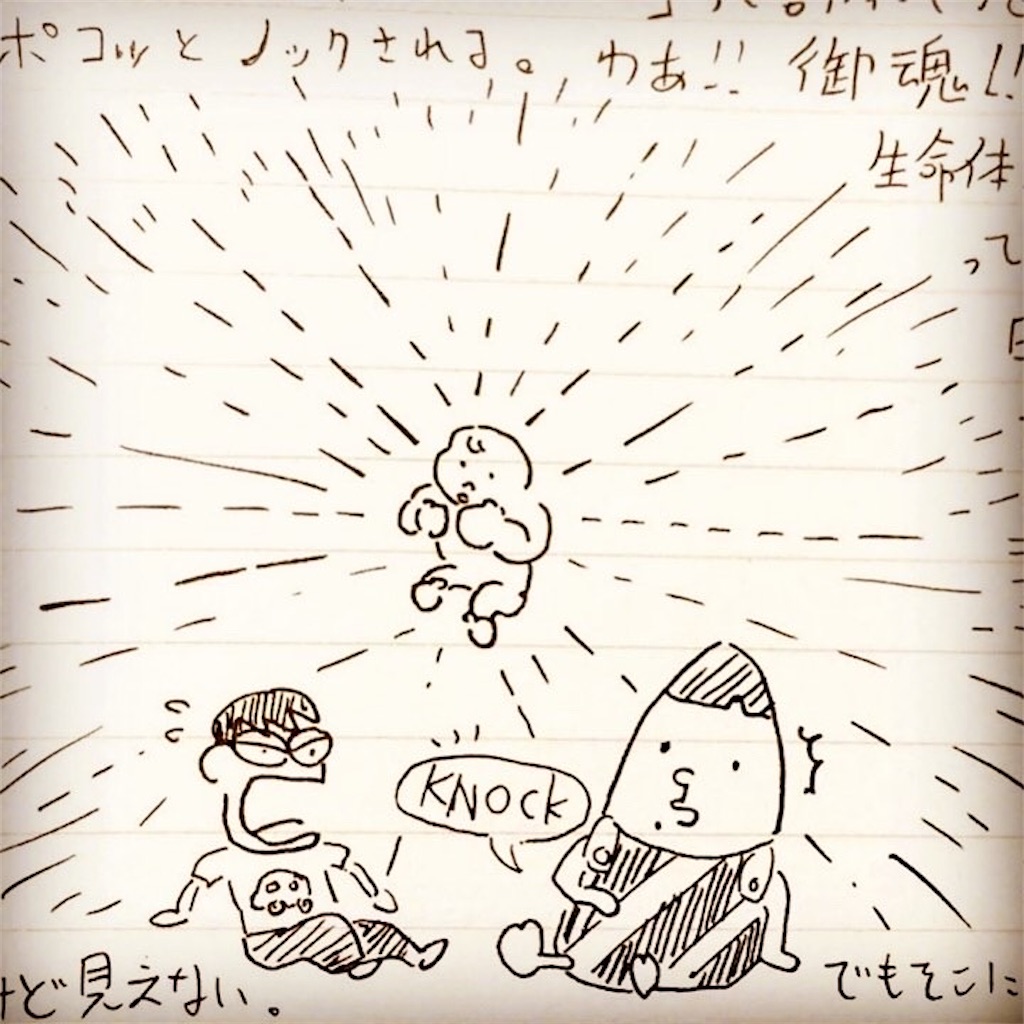 ポコッとノックされる。 わあ!! 御魂!!
生命体
って
KNOCK
けど見えない。 でもそこに